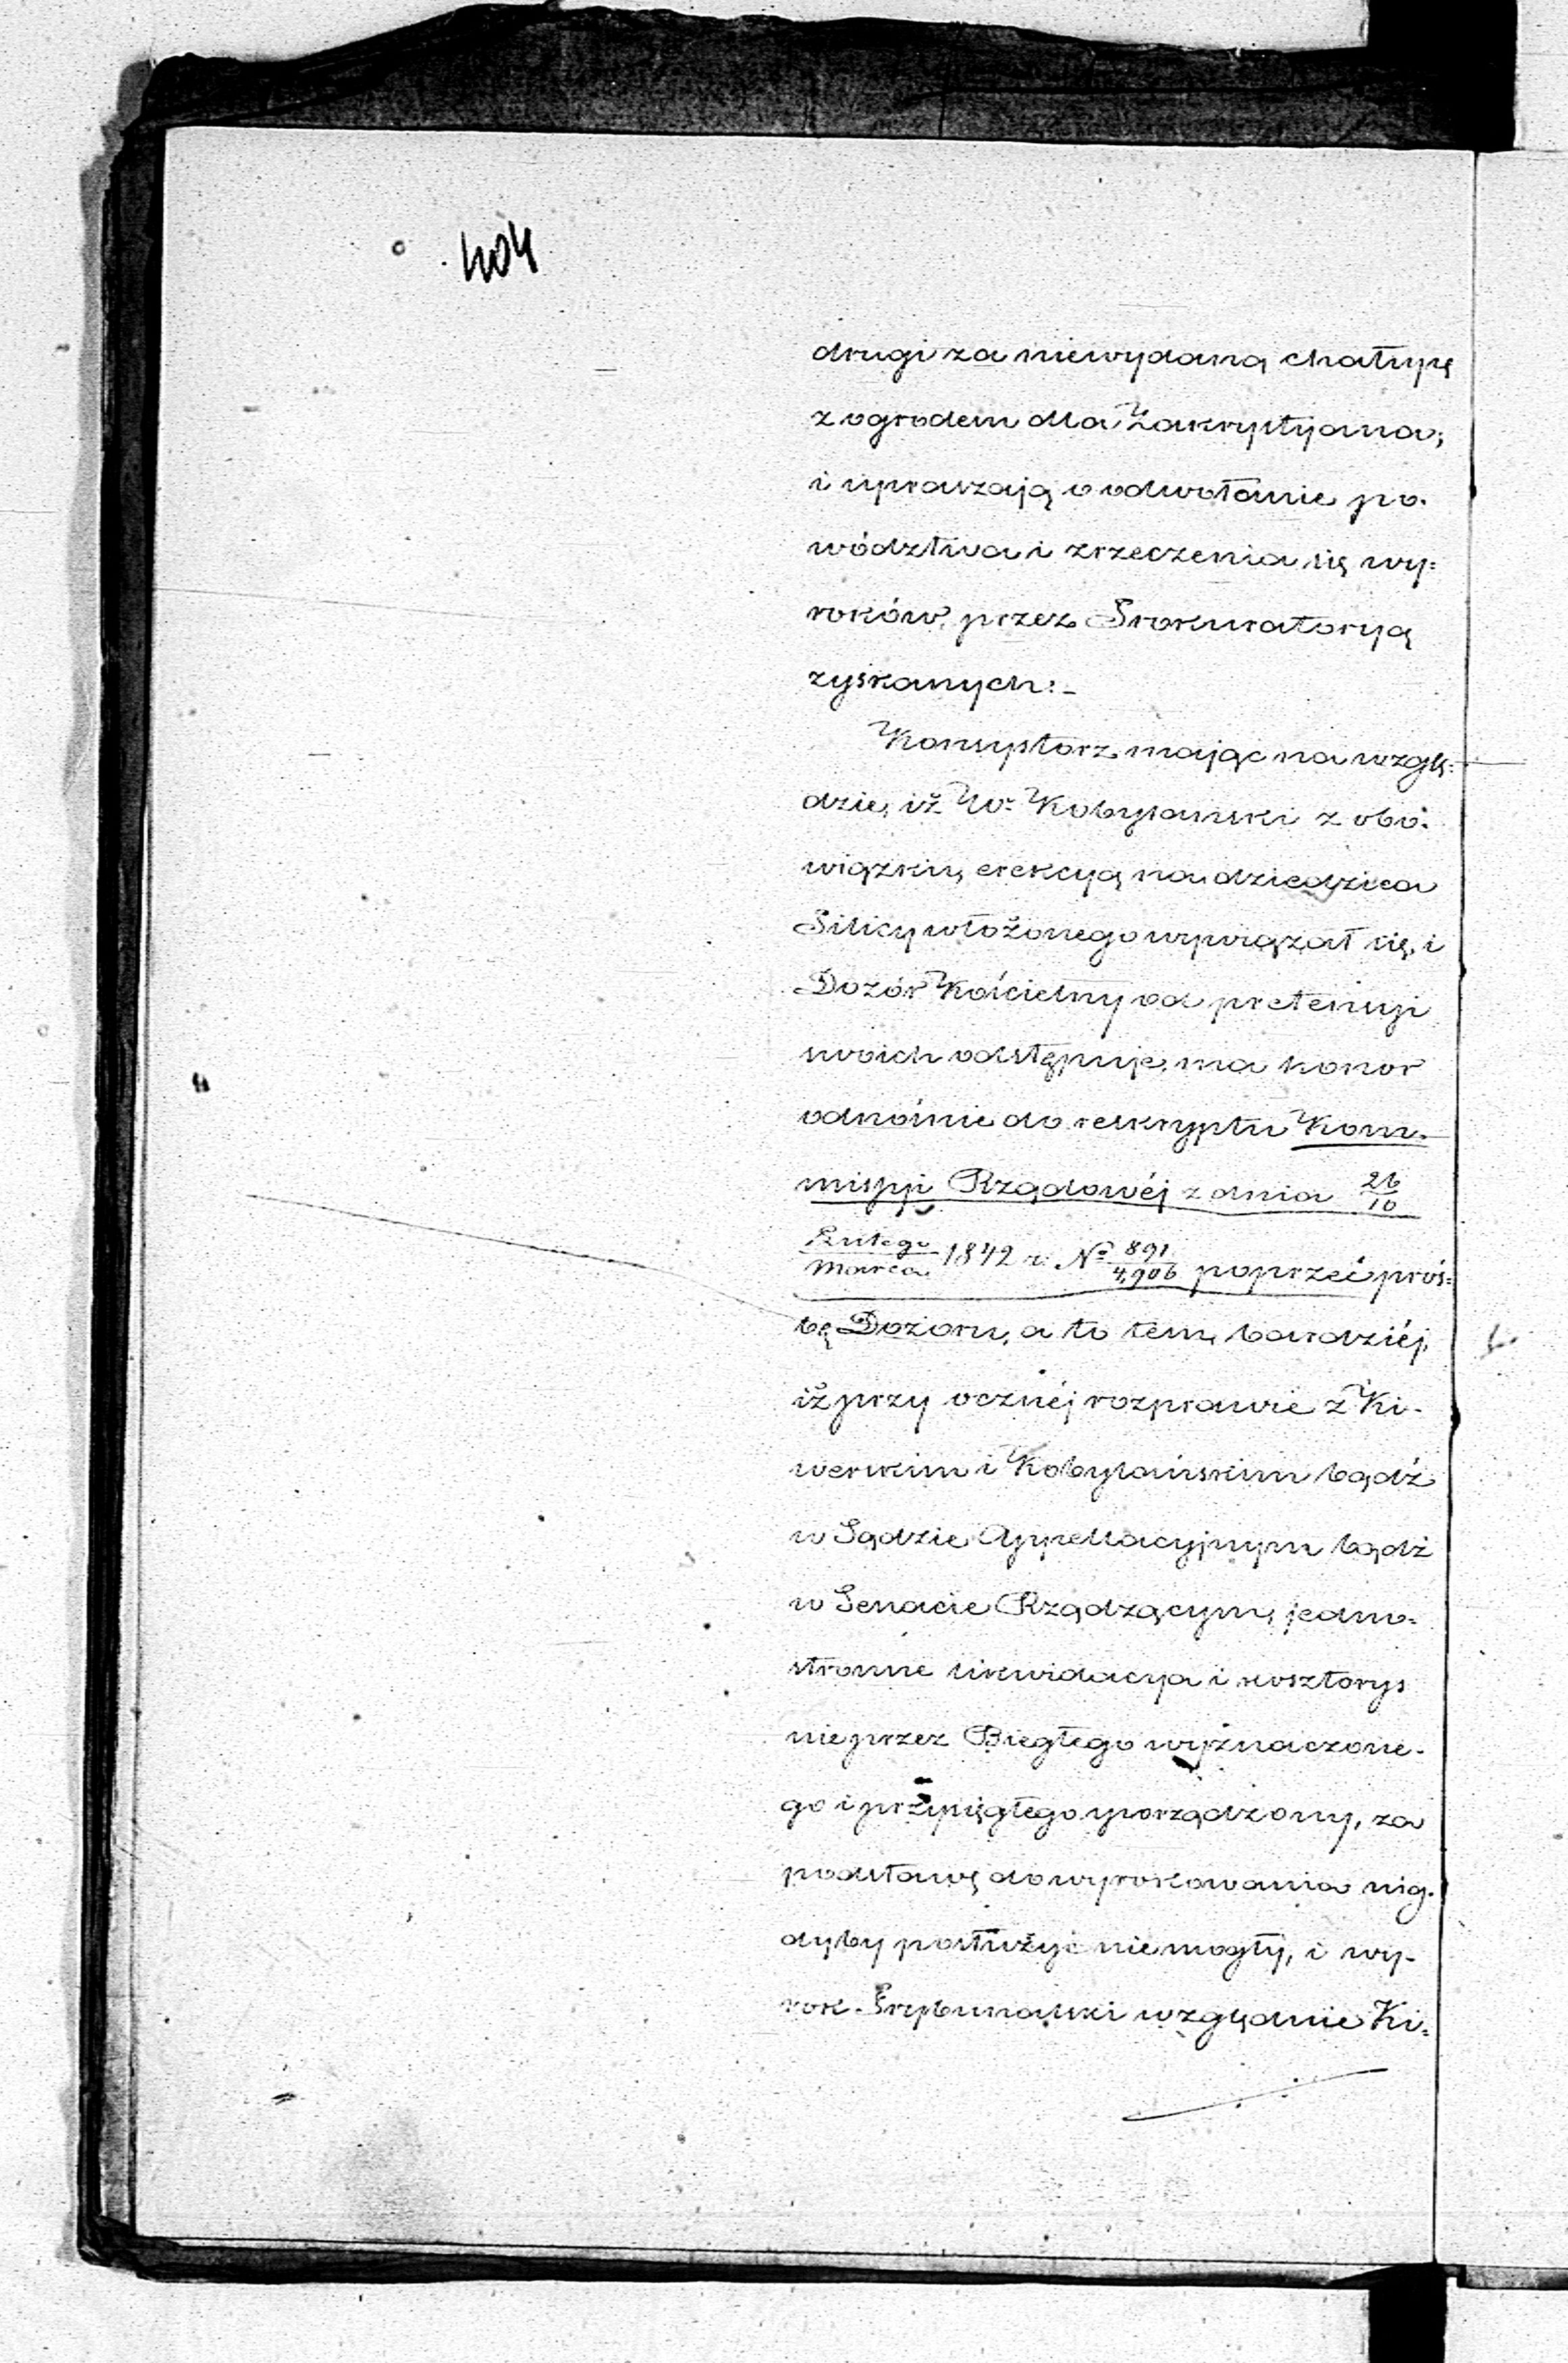 404
drugi za niewydaną chałupę
z ogrodem dla Zakrystyana;
i upraszają o odwołanie po-
wództwa i zrzeczenia się wy=
roków, przez Prokuratoryą
zyskanych:-
Konsystorz mając na wzglę=
dzie, iż Wr. Kobylański z obo=
wiązku, erekcyą na dziedzica
Silicy włożonego wywiązał się, i
Dozór Kościelny od pretensyi
swoich odstępuje, ma honor
odnośnie do reskryptu Kom-
missyi Rządowéj z dnia 26/10
Lutego/Marca 1842 r. No 891/4,906 poprzeć proś=
bę Dozoru, a to tem bardziéj,
iż przy ocznéj rozprawie z Ki-
werskim i Kobylańskim bądź
w Sądzie Appellacyjnym bądź
w Senacie Rządzącym, jedno-
stronne likwidacya i kosztorys
nie przez Biegłego wyznaczone-
go i przysięgłego sporządzony, za
podstawę do wyrokowania nig-
dyby posłużyć nie mogły, i wy-
rok Trybunalski względnie Ki=